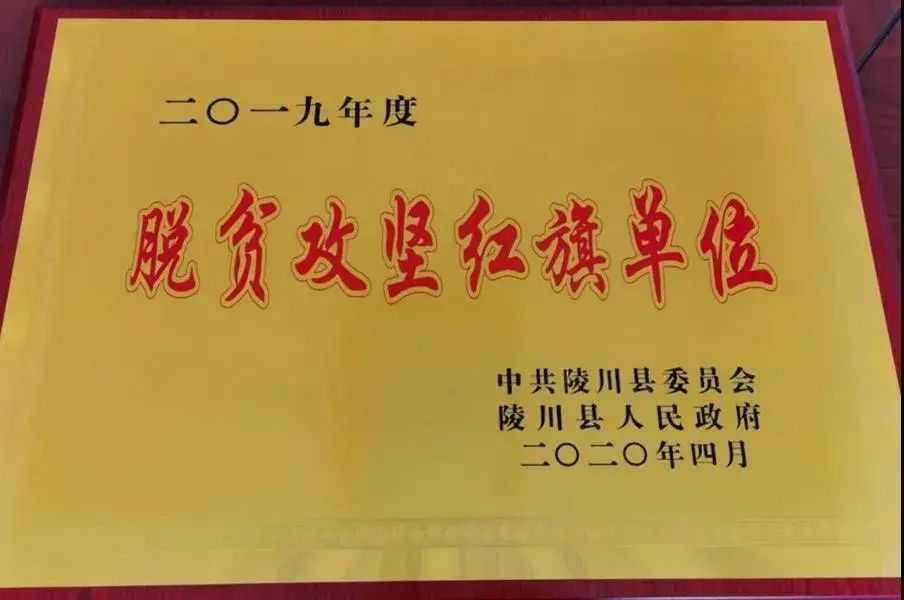 二〇一九年度
脱贫攻坚红旗单位
中共陵川县委员会
陵川县人民政府
二〇二〇年四月